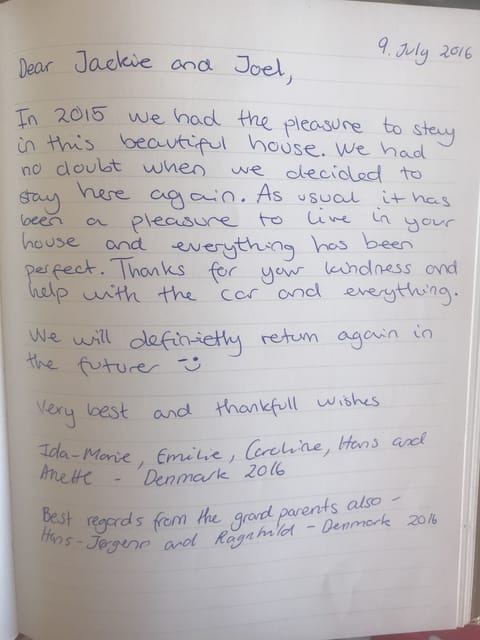 9. July 2016
Dear Jackie and Joel,
In 2015 we had the pleasure to stay
in this beautiful house. We had
no doubt when we decided to
stay here again. As usual it has
been a pleasure to live in your
house and everything has been
perfect. Thanks for your kindness and
help with the car and everything.
We will definietly return again in
the futurer :-)
Very best and thankfull wishes
Ida-Marie, Emilie, Caroline, Hans and
Anette - Denmark 2016
Best regards from the grand parents also -
Hans-Jørgenn and Ragnhild - Denmark 2016